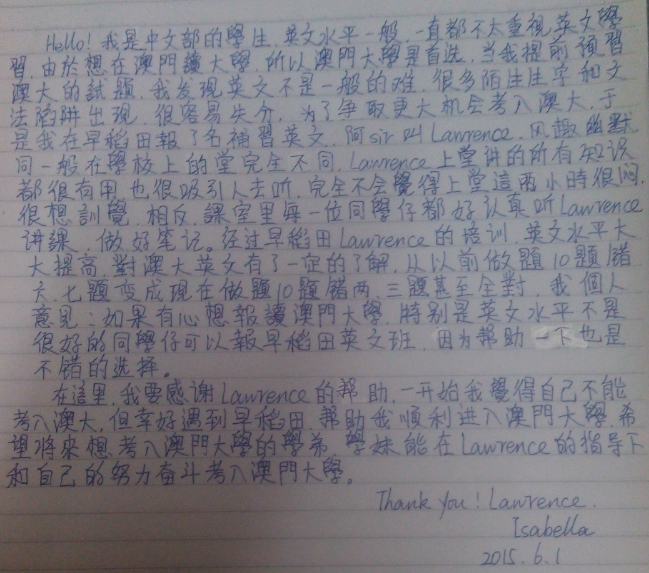 Hello! 我是中文部的學生，英文水平一般，一直都不太重視英文學
習，由於想在澳門讀大學，所以澳門大學是首选，当我提前補習
澳大的試題，我发現英文不是一般的难，很多陌生生字和文
法陷阱出現，很容易失分，为了争取更大机会考入澳大，于
是我在早稻田報了名補習英文，阿sir叫Lawrence，风趣幽默
同一般在學校上的堂完全不同，Lawrence上堂讲的所有知识
都很有用，也很吸引人去听，完全不会覺得上堂這兩小時很悶，
很想訓覺，相反，課室里每一位同學仔都好认真听Lawrence
讲課，做好笔记。经过早稻田Lawrence的培训，英文水平大
大提高，對澳大英文有了一定的了解，从以前做題10題錯
六、七題变成現在做題10題错两、三題甚至全對，我個人
意见：如果有心想報讀澳門大學，特别是英文水平不是
很好的同學仔可以報早稻田英文班，因为帮助一下也是
不错的选择。
在這里，我要感谢Lawrence的帮助，一开始我覺得自己不能
考入澳大，但幸好遇到早稻田，帮助我順利进入澳門大學，希
望将來想考入澳門大學的學弟，學妹能在Lawrence的指导下
和自己的努力奋斗考入澳門大學。
Thank you! Lawrence.
Isabella
2015.6.1